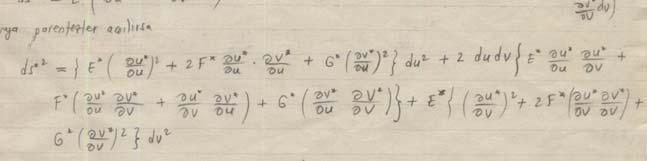 ∂v*/∂v dv)
ya parentezler açılırsa
ds*² = { E* ( ∂u*/∂u )² + 2 F* ∂u*/∂u · ∂v*/∂u + G* ( ∂v*/∂u )² } du² + 2 du dv { E* ∂u*/∂u ∂u*/∂v +
F* ( ∂u*/∂u ∂v*/∂v + ∂u*/∂v ∂v*/∂u ) + G* ( ∂v*/∂u ∂v*/∂v ) } + E* { ( ∂u*/∂v )² + 2 F* ( ∂u*/∂v ∂v*/∂v ) +
G* ( ∂v*/∂v )² } dv²